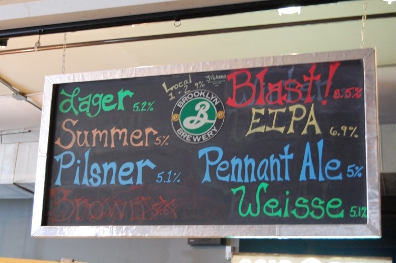 Lager 5.2%
Summer 5%
Pilsner 5.1%
Brown
Local
1 · 2 9%
BROOKLYN
B
BREWERY
Blast! 8.5%
EIPA 6.9%
Pennant Ale 5%
Weisse 5.1%